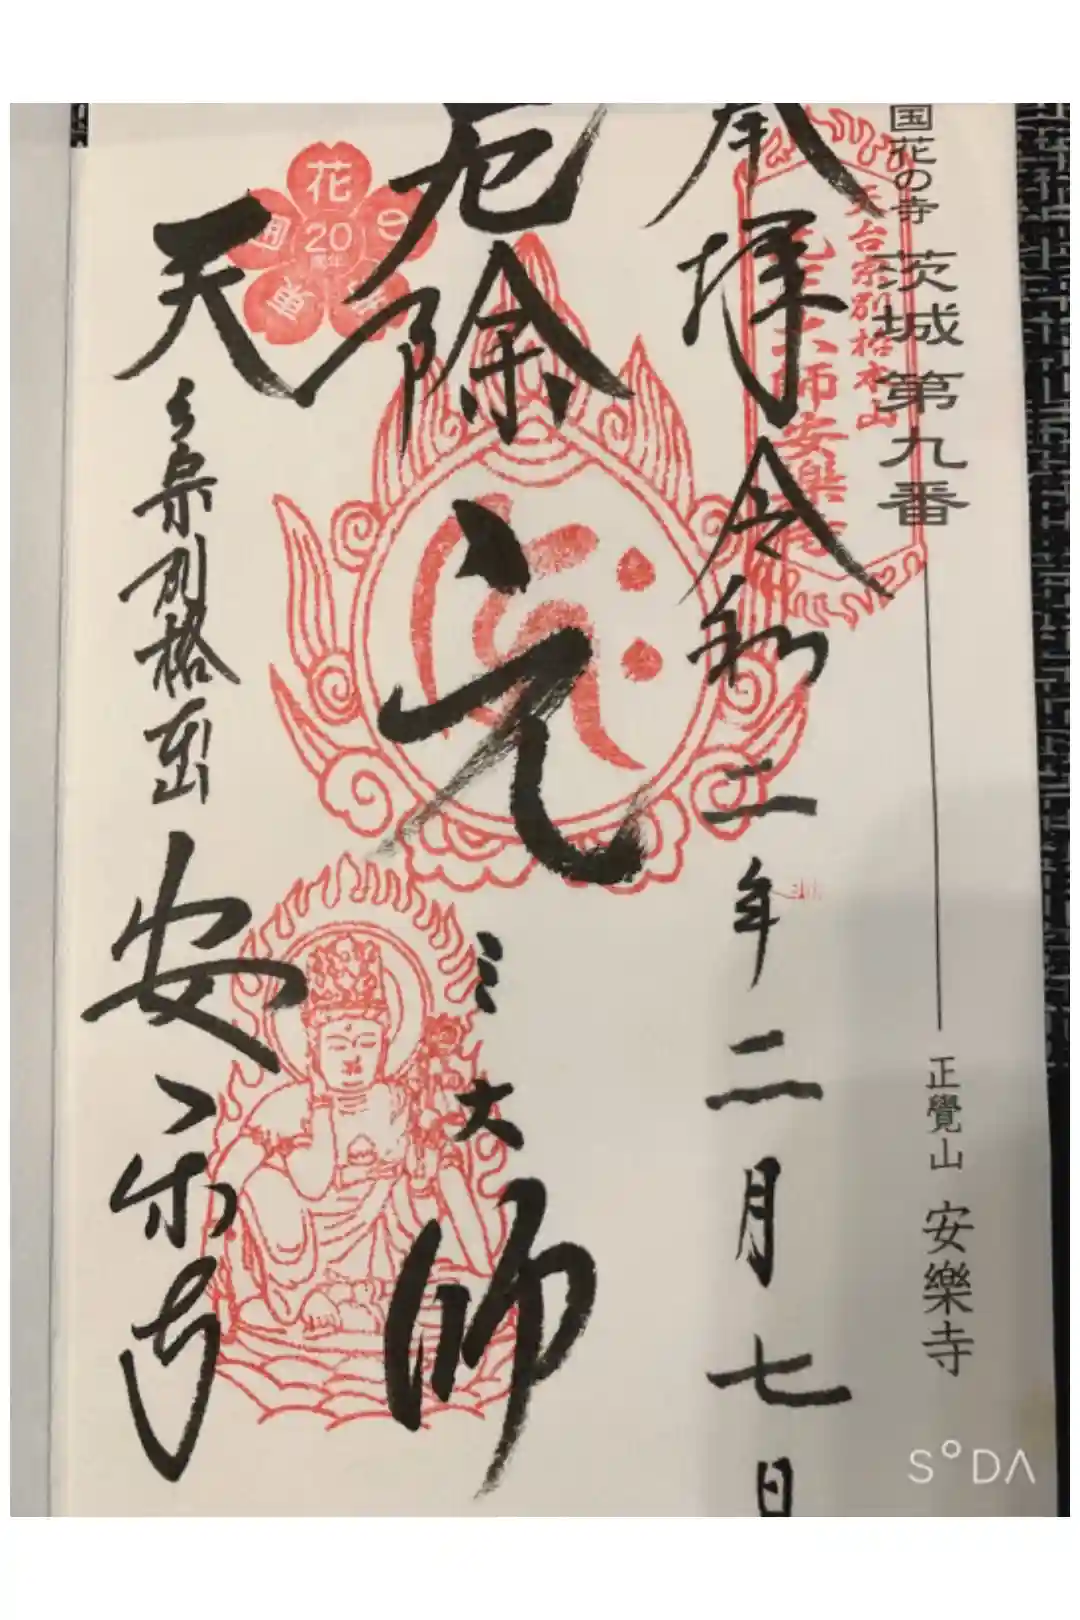 国花の寺 茨城 第九番
正覺山 安樂寺
奉拝 令和二年二月七日
天台宗別格本山
元三大師安樂寺
厄除 元三大師
花 20 周年 東国
天台宗別格本山 安樂寺
SODA